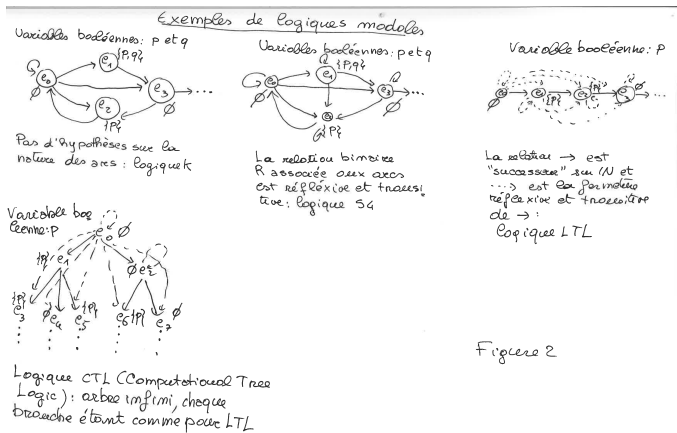 Exemples de logiques modales
Variables booléennes: p et q
{p,q}
e1
e0
∅
e3
∅
e2
{p}
Pas d'hypothèses sur la
nature des arcs : logique K
Variables booléennes: p et q
{p,q}
e1
e0
∅
e3
∅
{p}
La relation binaire
R associée aux arcs
est réfléxive et transi
tive: logique S4
Variable booléenne: p
{p}
∅
{p}
∅
La relation → est
"successeur" sur ℕ et
⇢ est la fermeture
réflexive et transitive
de → :
logique LTL
Variable boo
léenne: p
e0 ∅
{p} e1
∅ e2
{p} e3
∅ e4
e5 {p}
e6 {p}
e7 ∅
Logique CTL (Computational Tree
Logic) : arbre infini, chaque
branche étant comme pour LTL
Figure 2